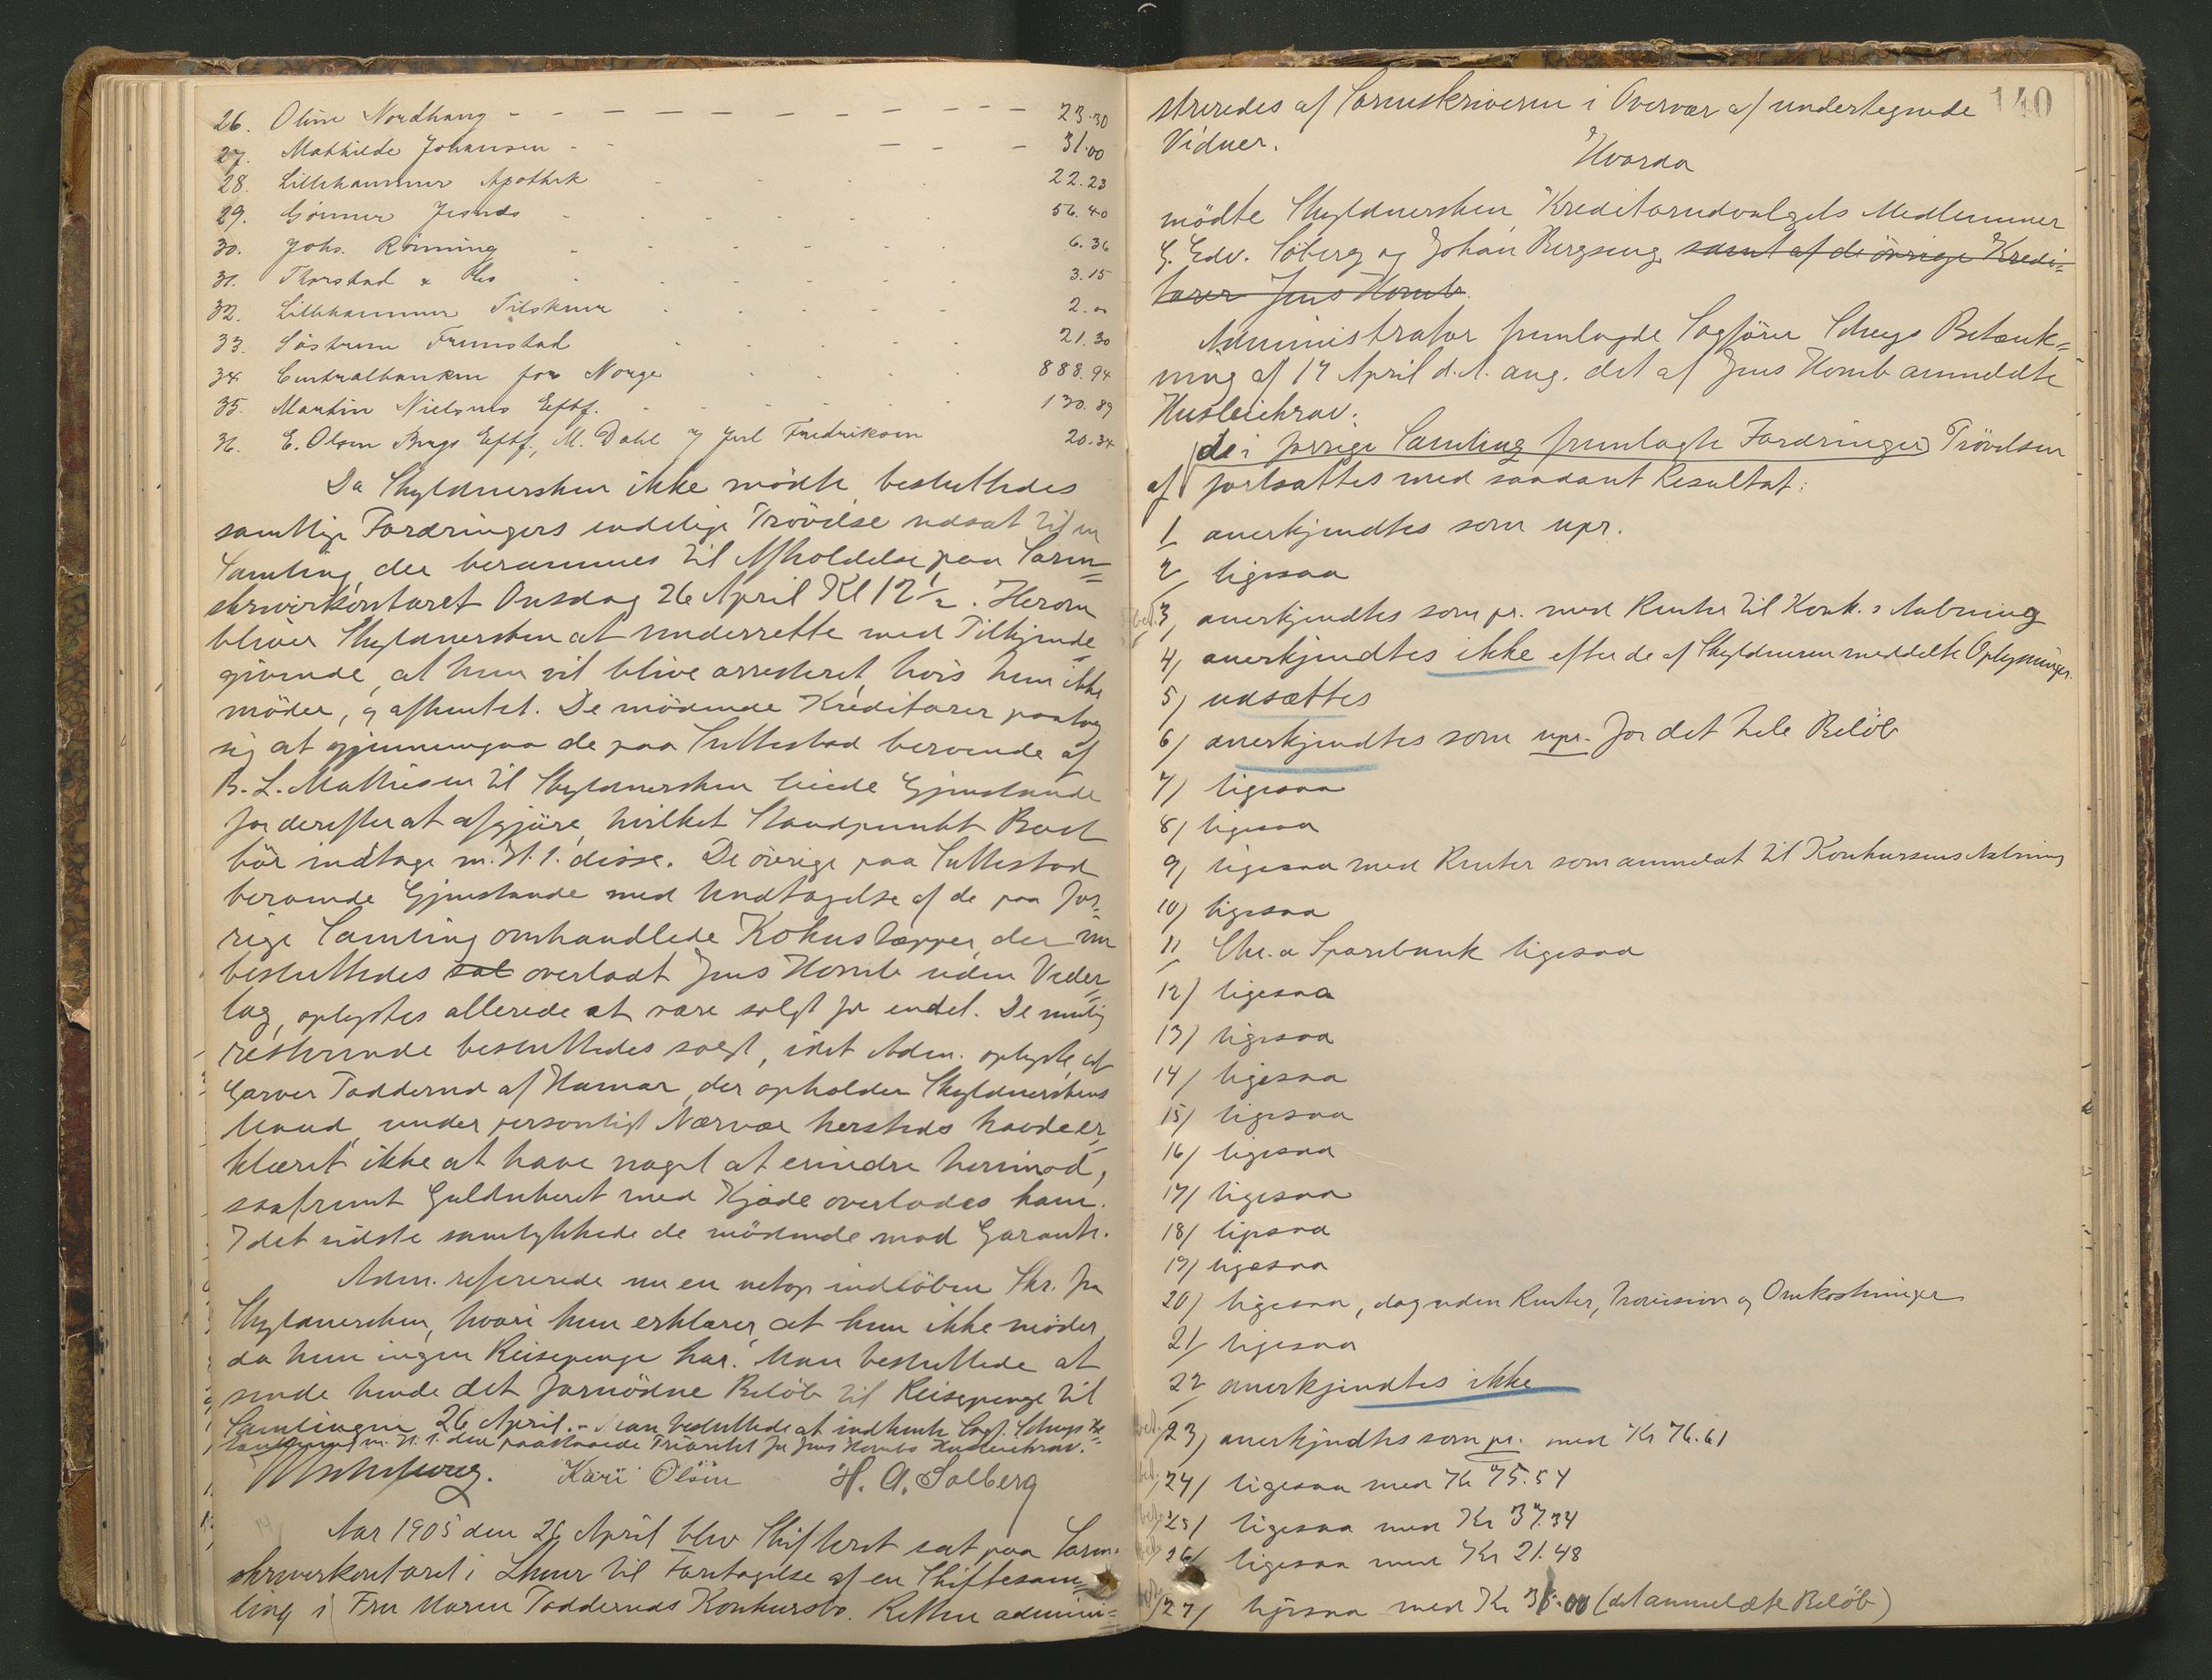 26. Oline Nordhaug - - - - - - - - - - - 23.30
27. Mathilde Johansen - - - - - 31.00
28. Lillehammer Apothek - - - - 22.23
29. Gjermer - - - - - 56.40
30. Johs. Rönning - - - - - 6.36
31. Thorstad & - - - - - 3.15
32. Lillehammer Tilskuer - - - - 2.
33. Søstrene Frunstad - - - - 21.30
34 Centralbanken for Norge - - - - 888.94
35. Martin Nielsens Eftf. - - - - 130.89
36. E. Olsen Eftf., M. Dahl Fredriksen 20.34
Da Skyldnersken ikke mödte besluttedes
samtlige Fordringers endelige Prövelse udsat til en
Samling, der berammes til Afholdelse paa Soren-
skriverkontoret Onsdag 26 April Kl 12½. Herom
bliver Skyldnersken at underrette med Tilkjende-
givende, at hun vil blive arresteret, hvis hun ikke
möder, og afhentet. De mödende Kreditorer paatog
sig at gjennemgaa de paa Sullestad beroende af
B. L. Mathiesen til Skyldnersken leiede Gjenstande
for derefter at afgjöre, hvilket Standpunkt Boet
bör indtage m. H. t. disse. De övrige paa Sullestad
beroende Gjenstande med Undtagelse af de paa for-
rige Samling omhandlede Kokustæpper, der nu
besluttedes sol overladt Jens Homb uden Veder-
lag, oplystes allerede at være solgt for endel. De mulig
resterende besluttedes solgt, idet Adm. oplyste, at
Garver Todderud af Hamar, der opholder Skyldnerskens
Mand, under personligt Nærvær hersteds havde er-
klæret ikke at have noget at erindre herimod,
saafremt Gulduhret med Kjæde overlodes ham.
I det sidste samtykkede de mödende mod Garanti.
Adm. refererede nu en netop indlöben Skr. fra
Skyldnersken, hvori hun erklærer, at hun ikke möder,
da hun ingen Reisepenge har. Man besluttede at
sende hende det fornödne Belöb til Reisepenge til
Samlingen 26 April. - Man besluttede at indhente Sagf. Scheys Be-
tænkning m. H. t. den paastaaede Prioritet for Jens Hombs Husleiekrav.
Kari Olsen H. A. Solberg
Aar 1905 den 26 April blev Skifteret sat paa Soren-
skriverkontoret i Lhmr til Foretagelse af en Skiftesam-
ling i Fru Maren Todderuds Konkursbo. Retten admini-
140
streredes af Sorenskriveren i Overvær af undertegnede
Vidner.
Hvorda
mödte Skyldnersken Kreditorudvalgets Medlemmer
G. Edv. Söberg og Johan Bergseng samt af de övrige Kredi-
torer Jens Homb.
Administrator fremlagde Sagförer Scheys Betænk-
ning af 17 April d. A. ang. det af Jens Homb anmeldte
Husleiekrav.
de i forrige Samling fremlagte Fordringer Prövelsen
af fortsattes med saadant Resultat:
1 anerkjendtes som upr.
2 ligesaa
bet. 3, anerkjendtes som pr. med Renter til Konk.s Aabning
4, anerkjendtes ikke efter de af Skyldneren meddelte Oplysninger.
5) udsættes
6) anerkjendtes som upr. for det hele Belöb
7) ligesaa
8) ligesaa
9, ligesaa med Renter som anmeldt til Konkursens Aabning
10) ligesaa
11 Chr.a Sparebank ligesaa
12) ligesaa
13) ligesaa
14) ligesaa
15) ligesaa
16) ligesaa
17) ligesaa
18) ligesaa
19) ligesaa
20) ligesaa, dog uden Renter, Provision og Omkostninger
21 ligesaa
22 anerkjendtes ikke
bet. 23) anerkjendtes som pr. med Kr 76.61
bet. 24) ligesaa med Kr 75.54
bet. 25) ligesaa med Kr 37.34
bet. 26) ligesaa med Kr 21.48
bet. 27) ligesaa med Kr 31.00 (det anmeldte Belöb)